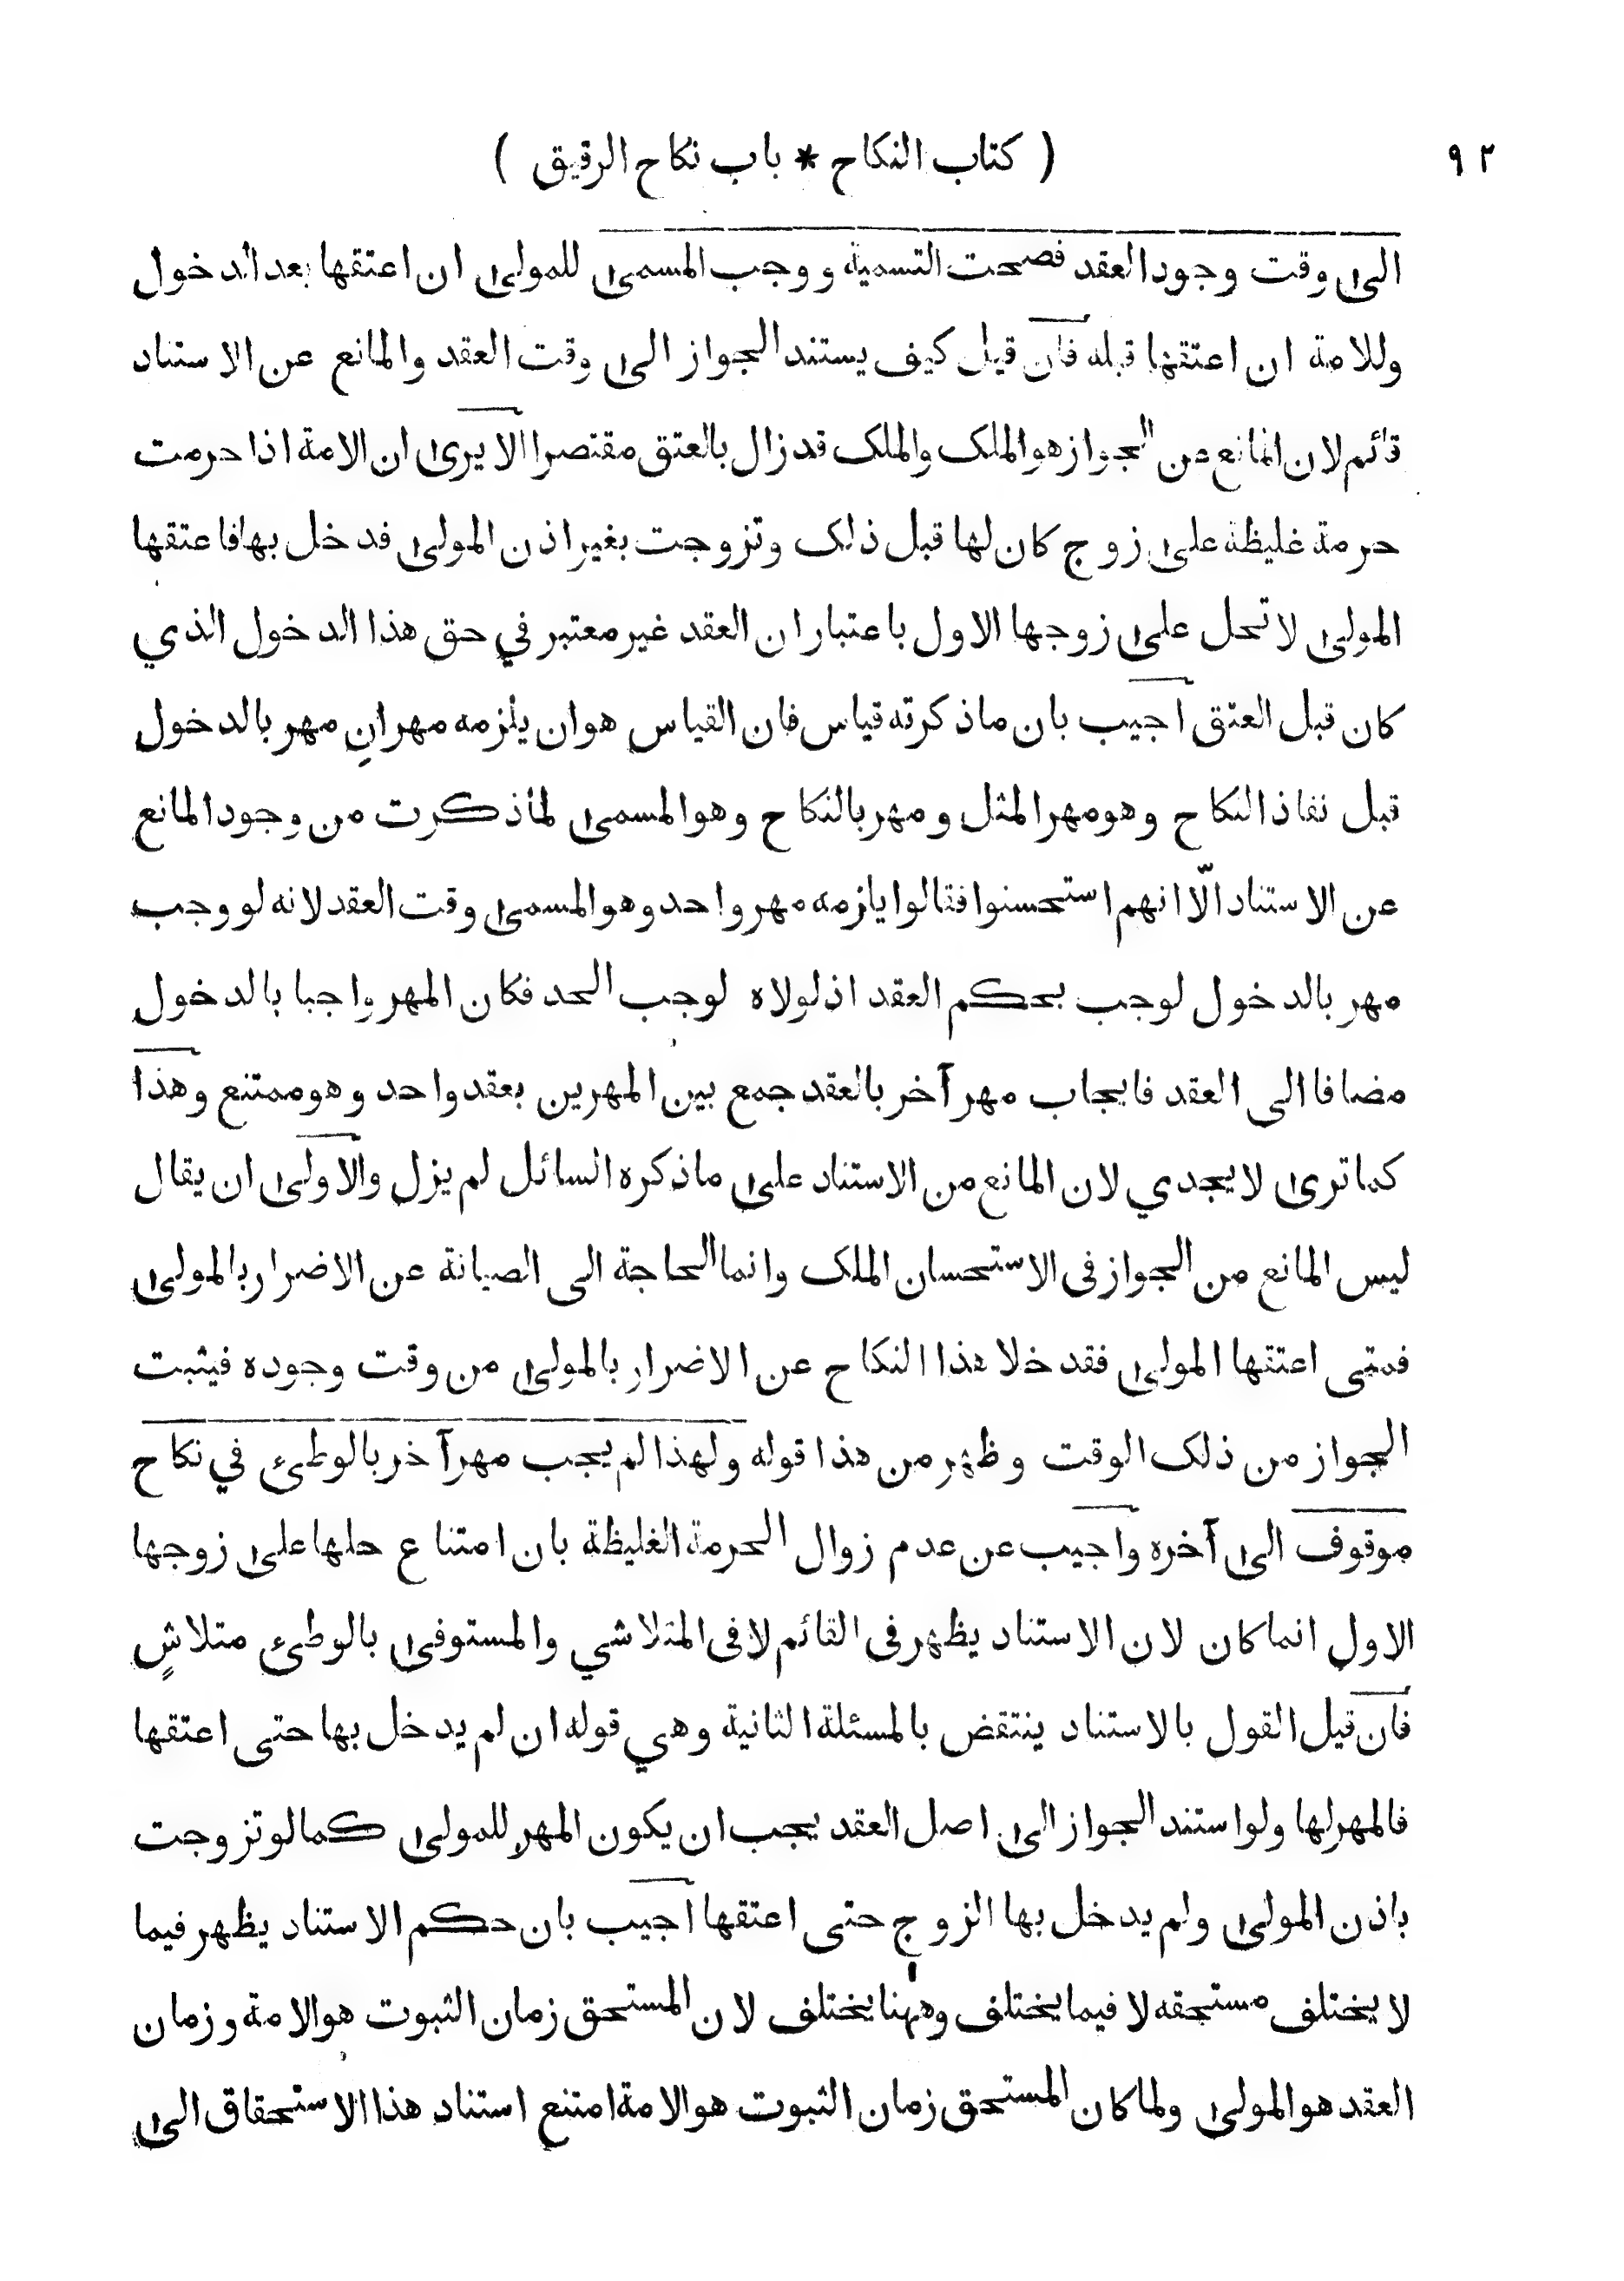 ٩٢
( كتاب النكاح * باب نكاح الرقيق )
الى وقت وجود العقد فصحت التسمية و وجب المسمى للمولى ان اعتقها بعد الدخول
وللامة ان اعتقها قبله فان قيل كيف يستند الجواز الى وقت العقد والمانع عن الاستناد
قائم لان المانع عن الجواز هو الملك والملك قد زال بالعتق مقتصرا الا يرى ان الامة اذا حرمت
حرمة غليظة على زوج كان لها قبل ذلك وتزوجت بغير اذن المولى فدخل بها فاعتقها
المولى لا تحل على زوجها الاول باعتبار ان العقد غير معتبر في حق هذا الدخول الذي
كان قبل العتق اجيب بان ماذكرته قياس فان القياس هو ان يلزمه مهرانِ مهر بالدخول
قبل نفاذ النكاح وهو مهر المثل و مهر بالنكاح وهو المسمى لما ذكرت من وجود المانع
عن الاستناد الّا انهم استحسنوا فقالوا يلزمه مهر واحد وهو المسمى وقت العقد لانه لو وجب
مهر بالدخول لوجب بحكم العقد اذ لولاه لوجب الحد فكان المهر واجبا بالدخول
مضافا الى العقد فايجاب مهر آخر بالعقد جمع بين المهرين بعقد واحد وهو ممتنع وهذا
كما ترى لا يجدي لان المانع من الاستناد على ماذكره السائل لم يزل والاولى ان يقال
ليس المانع من الجواز فى الاستحسان الملك وانما الحاجة الى الصيانة عن الاضرار بالمولى
فمتى اعتقها المولى فقد خلا هذا النكاح عن الاضرار بالمولى من وقت وجوده فيثبت
الجواز من ذلك الوقت وظهر من هذا قوله ولهذا لم يجب مهر آخر بالوطئ في نكاح
موقوف الى آخره واجيب عن عدم زوال الحرمة الغليظة بان امتناع حلها على زوجها
الاول انما كان لان الاستناد يظهر فى القائم لا فى المتلاشي والمستوفى بالوطئ متلاشٍ
فان قيل القول بالاستناد ينتقض بالمسئلة الثانية وهي قوله ان لم يدخل بها حتى اعتقها
فالمهر لها ولو استند الجواز الى اصل العقد يجب ان يكون المهر للمولى كما لو تزوجت
باذن المولى ولم يدخل بها الزوج حتى اعتقها اجيب بان حكم الاستناد يظهر فيما
لا يختلف مستحقه لا فيما يختلف وههنا يختلف لان المستحق زمان الثبوت هو الامة و زمان
العقد هو المولى ولما كان المستحق زمان الثبوت هو الامة امتنع استناد هذا الاستحقاق الى